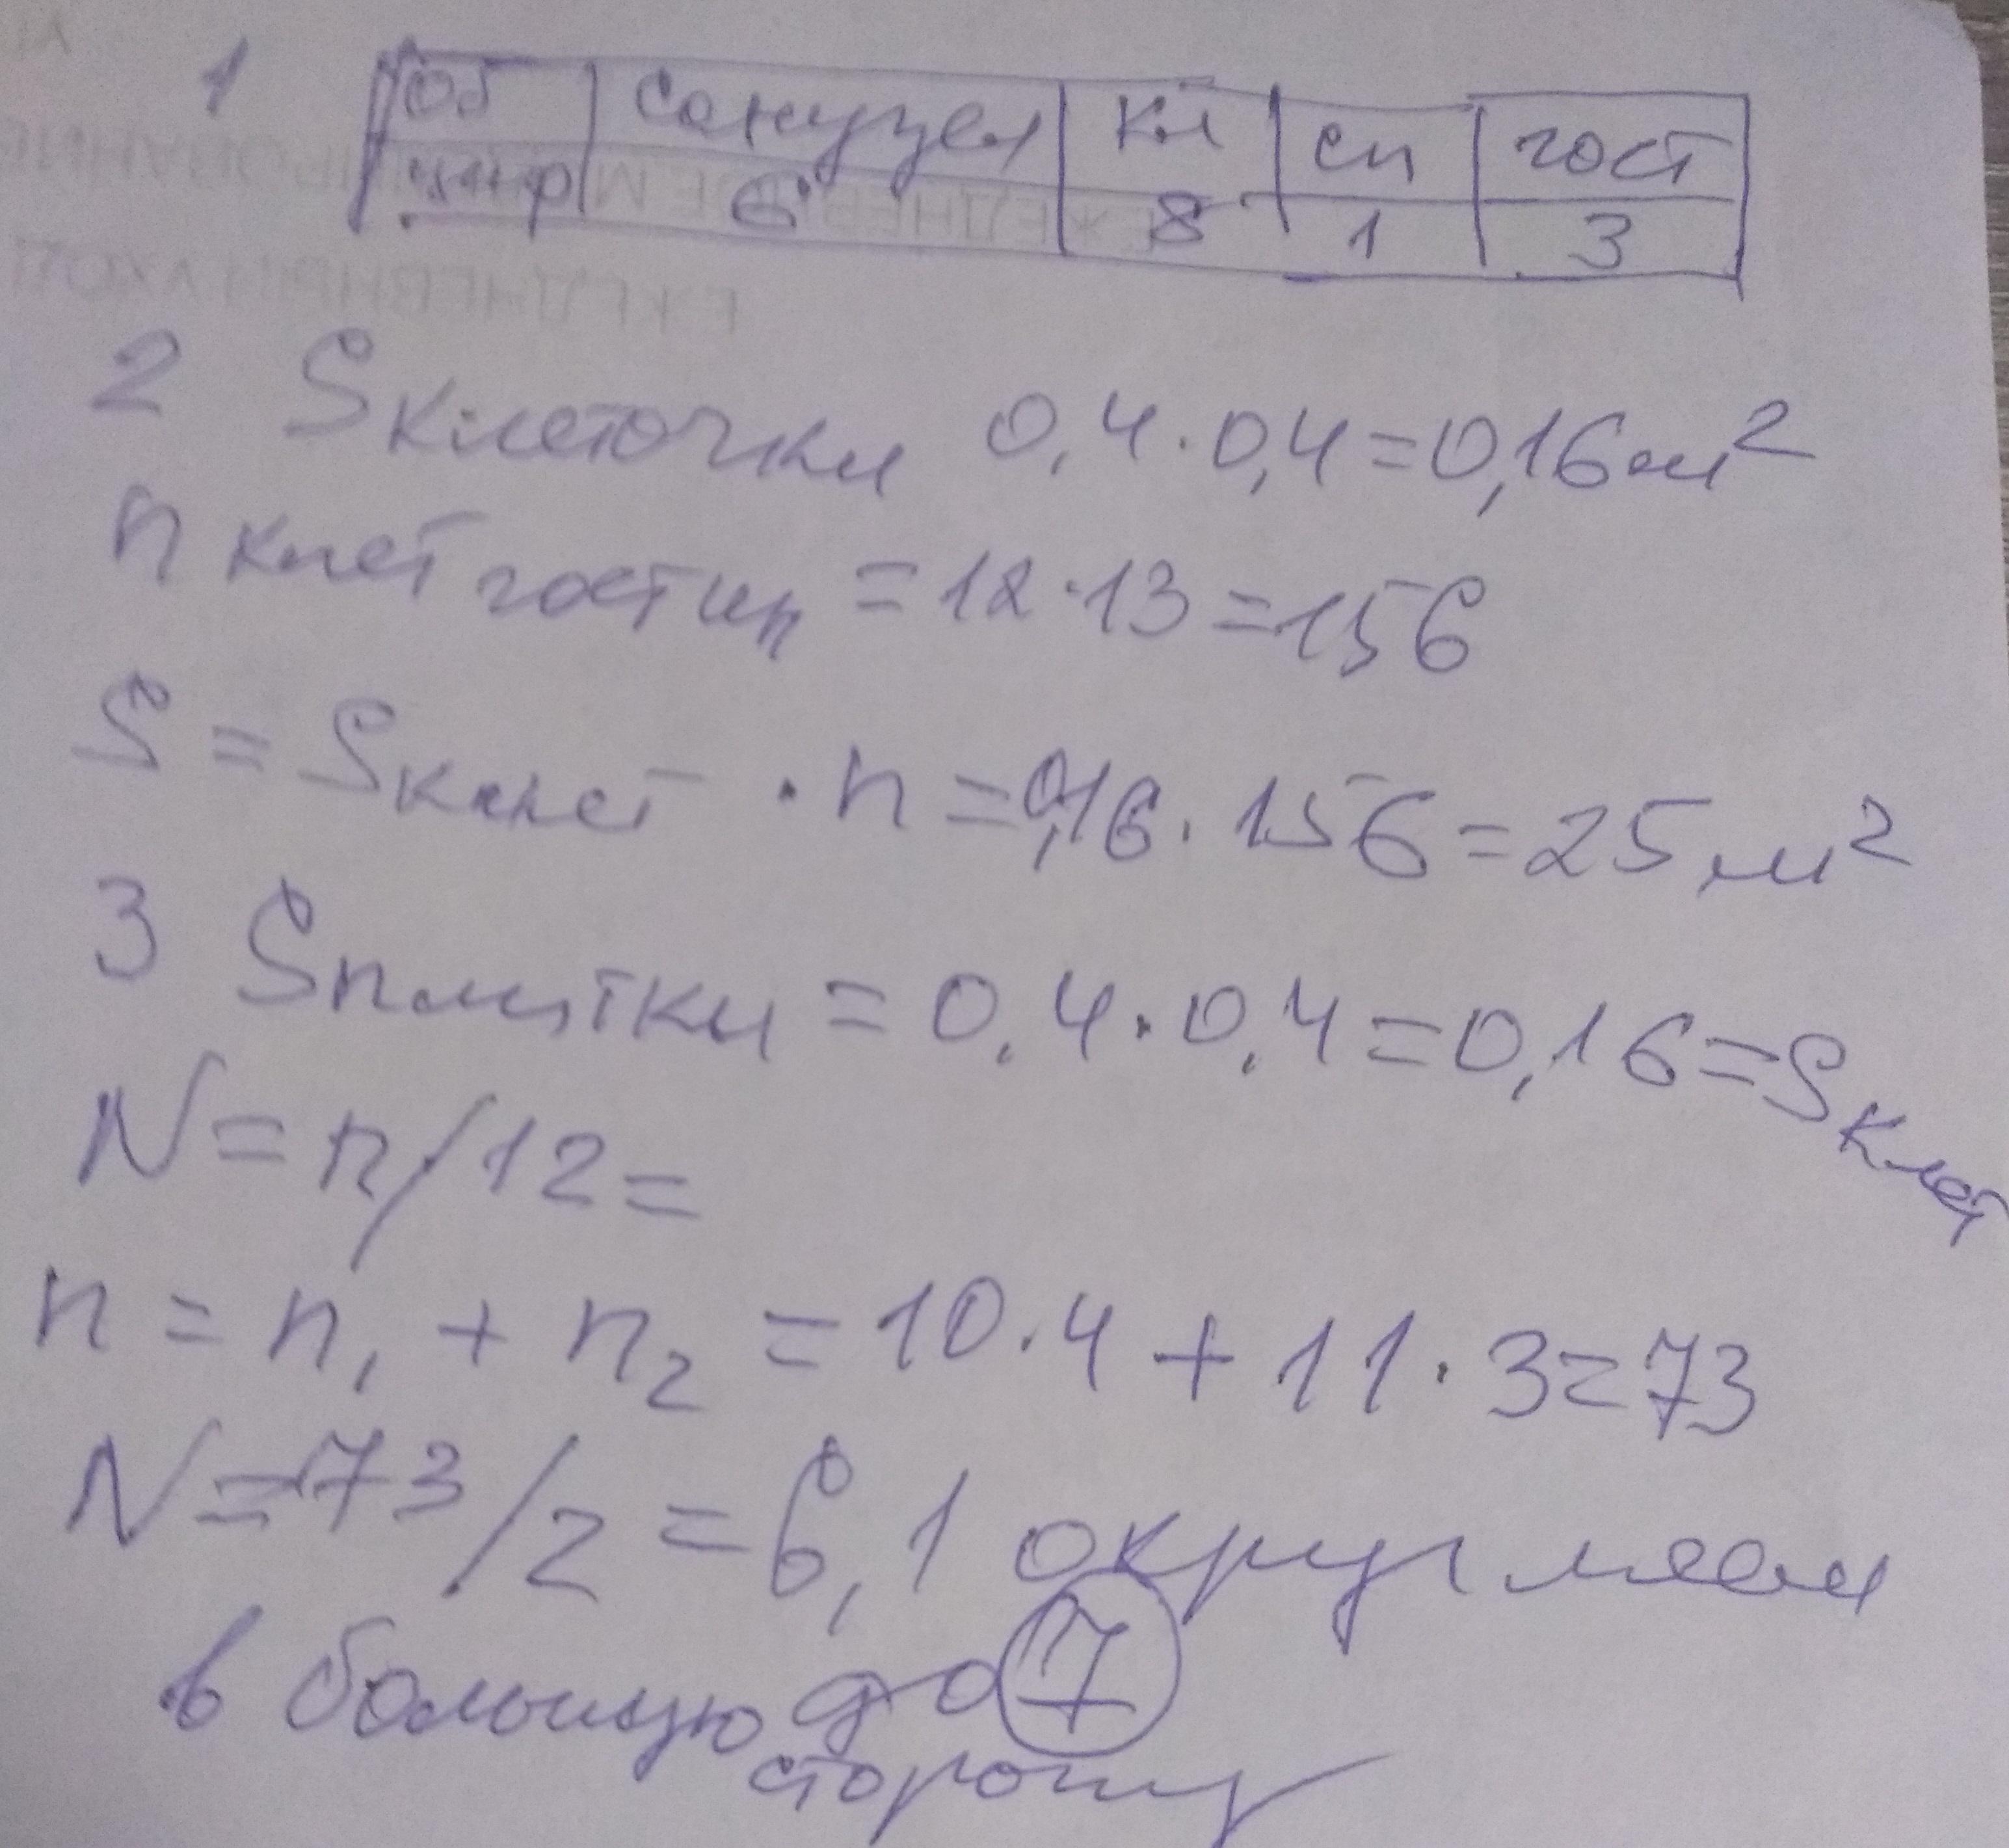 1 Об Санузел Кл сп гост
циф 6 8 1 3
2 Sклеточки 0,4·0,4=0,16м²
n клет гостин = 12·13=156
S = Sклет · n = 0,16·156=25м²
3 Sплитки = 0,4·0,4=0,16=Sклет
N = n/12=
n = n₁ + n₂ = 10·4 + 11·3=73
N=73/2 = 6,1 округляем
в большую до 7
сторону